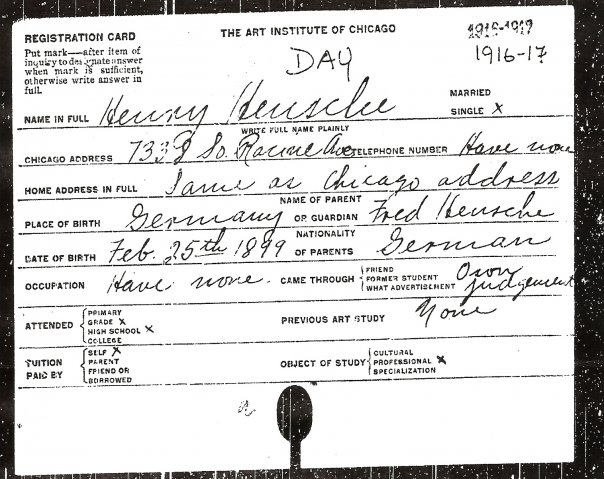 REGISTRATION CARD
THE ART INSTITUTE OF CHICAGO
1916-1917
Put mark—after item of
inquiry to designate answer
when mark is sufficient,
otherwise write answer in
full.
DAY
1916-17
MARRIED
NAME IN FULL Henry Hensche SINGLE X
WRITE FULL NAME PLAINLY
CHICAGO ADDRESS So. Racine Ave TELEPHONE NUMBER Have none
HOME ADDRESS IN FULL Same as Chicago address
PLACE OF BIRTH Germany NAME OF PARENT OR GUARDIAN Fred Hensche
DATE OF BIRTH Feb. 25th 1899 NATIONALITY OF PARENTS German
OCCUPATION Have none. CAME THROUGH { FRIEND
FORMER STUDENT
WHAT ADVERTISEMENT Own judgement
ATTENDED { PRIMARY
GRADE X
HIGH SCHOOL X
COLLEGE
PREVIOUS ART STUDY None
TUITION PAID BY { SELF X
PARENT
FRIEND OR
BORROWED
OBJECT OF STUDY { CULTURAL
PROFESSIONAL X
SPECIALIZATION